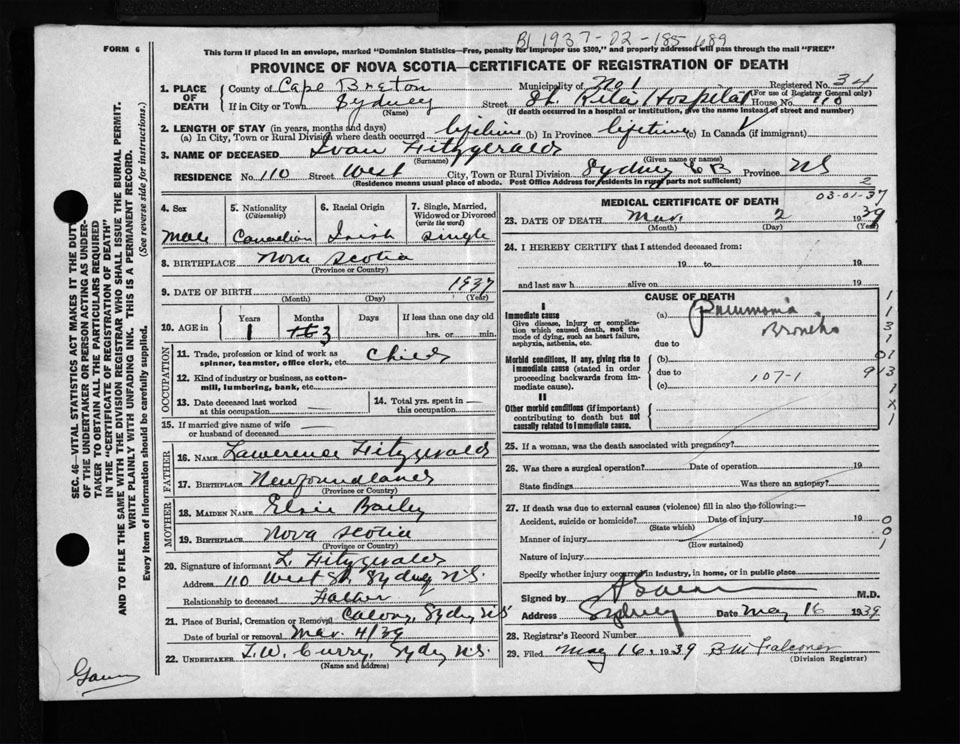 B1 1937-02-185 689
FORM 6
This form if placed in an envelope, marked "Dominion Statistics—Free, penalty for improper use $300," and properly addressed will pass through the mail "FREE"
PROVINCE OF NOVA SCOTIA—CERTIFICATE OF REGISTRATION OF DEATH
1. PLACE OF DEATH County of Cape Breton Municipality of No 1 Registered No. 34
(For use of Registrar General only)
If in City or Town Sydney Street St. Ritas Hospital House No. 110
(Name) (If death occurred in a hospital or institution, give the name instead of street and number)
2. LENGTH OF STAY (in years, months and days)
(a) In City, Town or Rural Division where death occurred lifetime (b) In Province lifetime (c) In Canada (if immigrant)
3. NAME OF DECEASED Ivan Fitzgerald
(Surname) (Given name or names)
RESIDENCE No. 110 Street West City, Town or Rural Division Sydney C B Province NS
(Residence means usual place of abode. Post Office Address for residents in rural parts not sufficient)
4. Sex 5. Nationality (Citizenship) 6. Racial Origin 7. Single, Married, Widowed or Divorced (write the word)
Male Canadian Irish Single
8. BIRTHPLACE Nova Scotia
(Province or Country)
9. DATE OF BIRTH 1937
(Month) (Day) (Year)
10. AGE in Years Months Days If less than one day old
1 3 hrs. or min.
OCCUPATION
11. Trade, profession or kind of work as spinner, teamster, office clerk, etc. Child
12. Kind of industry or business, as cotton-mill, lumbering, bank, etc.
13. Date deceased last worked at this occupation
14. Total yrs. spent in this occupation
15. If married give name of wife or husband of deceased
FATHER
16. NAME Lawerence Fitzgerald
17. BIRTHPLACE Newfoundland
(Province or Country)
MOTHER
18. MAIDEN NAME Elsie Bailey
19. BIRTHPLACE Nova Scotia
(Province or Country)
20. Signature of informant L. Fitzgerald
Address 110 West St. Sydney N.S.
Relationship to deceased Father
21. Place of Burial, Cremation or Removal Calvary, Sydney NS
Date of burial or removal Mar. 4/39
22. UNDERTAKER T.W. Curry, Sydney N.S.
(Name and address)
MEDICAL CERTIFICATE OF DEATH
03-01-37
23. DATE OF DEATH Mar. 2 1939
(Month) (Day) (Year)
24. I HEREBY CERTIFY that I attended deceased from:
19 to 19
and last saw h alive on 19
CAUSE OF DEATH
I
Immediate cause
Give disease, injury or complication which caused death, not the mode of dying, such as heart failure, asphyxia, asthenia, etc.
(a) Pneumonia
Broncho
due to
Morbid conditions, if any, giving rise to immediate cause (stated in order proceeding backwards from immediate cause).
(b)
due to 107-1
(c)
II
Other morbid conditions (if important) contributing to death but not causally related to immediate cause.
25. If a woman, was the death associated with pregnancy?
26. Was there a surgical operation? Date of operation 19
State findings Was there an autopsy?
27. If death was due to external causes (violence) fill in also the following:—
Accident, suicide or homicide? Date of injury 19
(State which)
Manner of injury
(How sustained)
Nature of injury
Specify whether injury occurred in industry, in home, or in public place
Signed by M.D.
Address Sydney Date May 16 1939
28. Registrar's Record Number
29. Filed May 16, 1939 B M Falconer
(Division Registrar)
SEC. 46—VITAL STATISTICS ACT MAKES IT THE DUTY
OF THE UNDERTAKER OR PERSON ACTING AS UNDER-
TAKER TO OBTAIN ALL THE PARTICULARS REQUIRED
IN THE "CERTIFICATE OF REGISTRATION OF DEATH"
AND TO FILE THE SAME WITH THE DIVISION REGISTRAR WHO SHALL ISSUE THE BURIAL PERMIT.
WRITE PLAINLY WITH UNFADING INK. THIS IS A PERMANENT RECORD.
Every item of information should be carefully supplied. (See reverse side for instructions.)